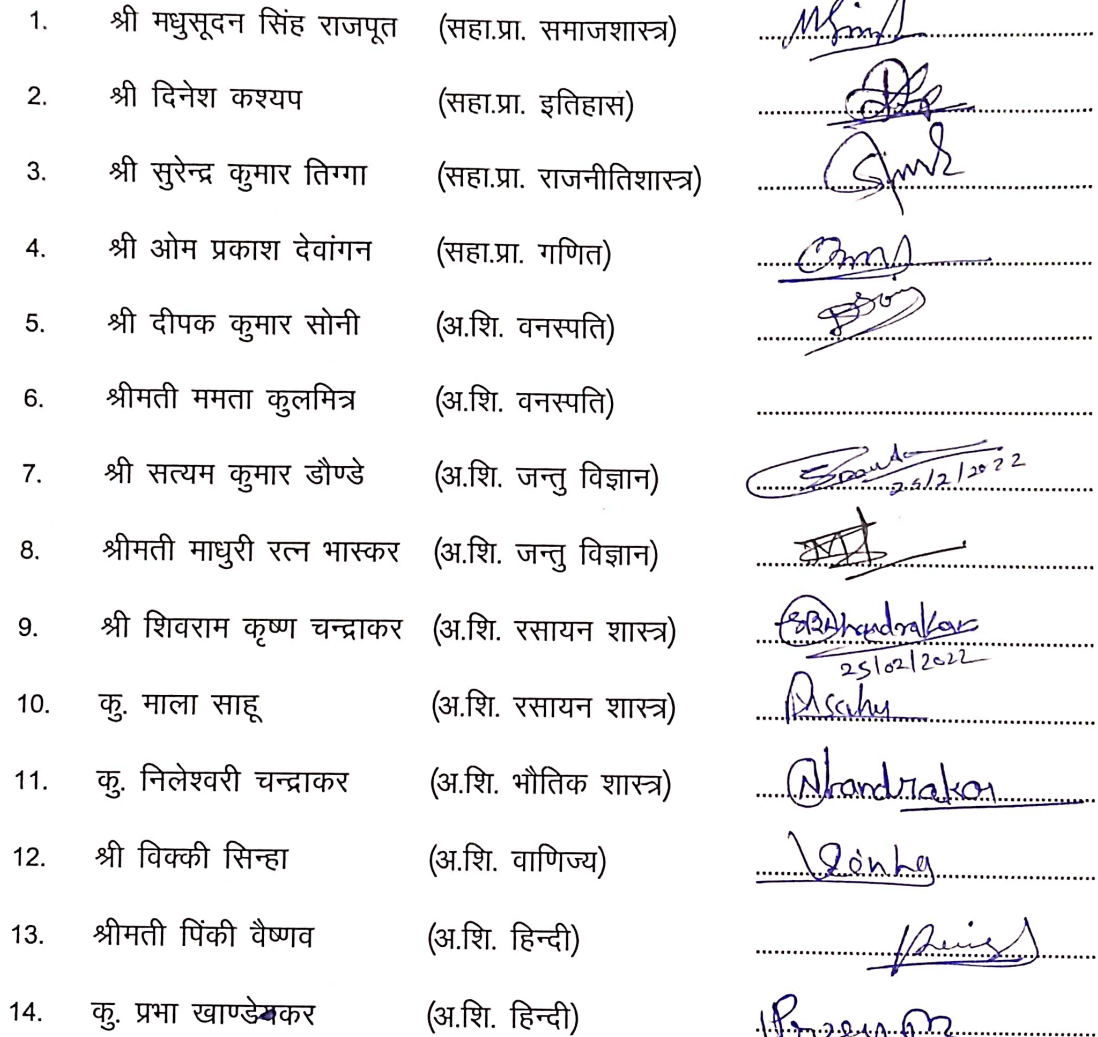 1. श्री मधुसूदन सिंह राजपूत (सहा.प्रा. समाजशास्त्र)
2. श्री दिनेश कश्यप (सहा.प्रा. इतिहास)
3. श्री सुरेन्द्र कुमार तिग्गा (सहा.प्रा. राजनीतिशास्त्र)
4. श्री ओम प्रकाश देवांगन (सहा.प्रा. गणित)
5. श्री दीपक कुमार सोनी (अ.शि. वनस्पति)
6. श्रीमती ममता कुलमित्र (अ.शि. वनस्पति)
7. श्री सत्यम कुमार डौण्डे (अ.शि. जन्तु विज्ञान) 25/2/2022
8. श्रीमती माधुरी रत्न भास्कर (अ.शि. जन्तु विज्ञान)
9. श्री शिवराम कृष्ण चन्द्राकर (अ.शि. रसायन शास्त्र)
25/02/2022
10. कु. माला साहू (अ.शि. रसायन शास्त्र)
11. कु. निलेश्वरी चन्द्राकर (अ.शि. भौतिक शास्त्र)
12. श्री विक्की सिन्हा (अ.शि. वाणिज्य)
13. श्रीमती पिंकी वैष्णव (अ.शि. हिन्दी)
14. कु. प्रभा (अ.शि. हिन्दी)